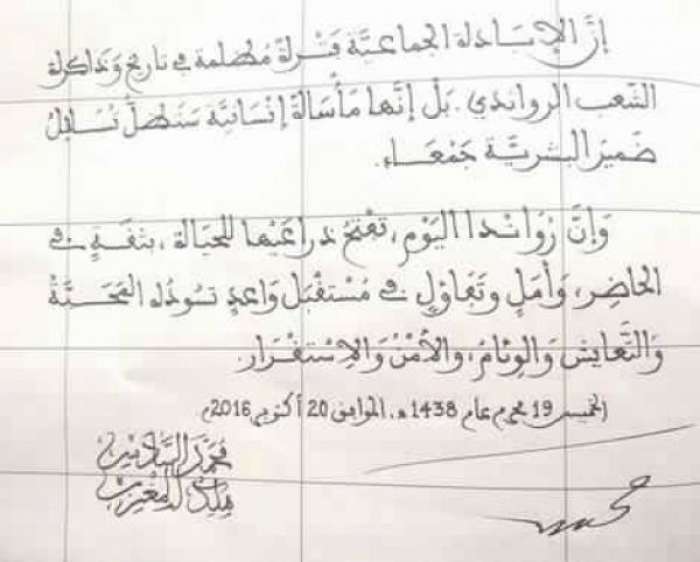 إنَّ الإبَادَة الجماعيَّة فَتْرَة مُظلمة في تاريخ وَذاكرة
الشّعب الرواندي. بَلْ إنَّها مَأْسَاة إنْسَانيَّة سَتَظلُّ تُسَائِلُ
ضَميرَ البشريَّة جَمْعَاء.
وَإنَّ رُوَانْدا اليَوْم، تفْتحُ ذراعَيْها للحَيَاة، بثقَةٍ في
الحَاضِر، وَأمَلٍ وتَفَاؤلٍ في مُسْتقْبَل وَاعدٍ تسُودُه المَحَبَّةُ
وَالتَّعايش وَالوِئامُ، والأمْنُ وَالاسْتقْرار.
الخميس 19 محرم عام 1438 هـ، الموافق 20 أكتوبر 2016م
محمد السادس
ملك المغرب